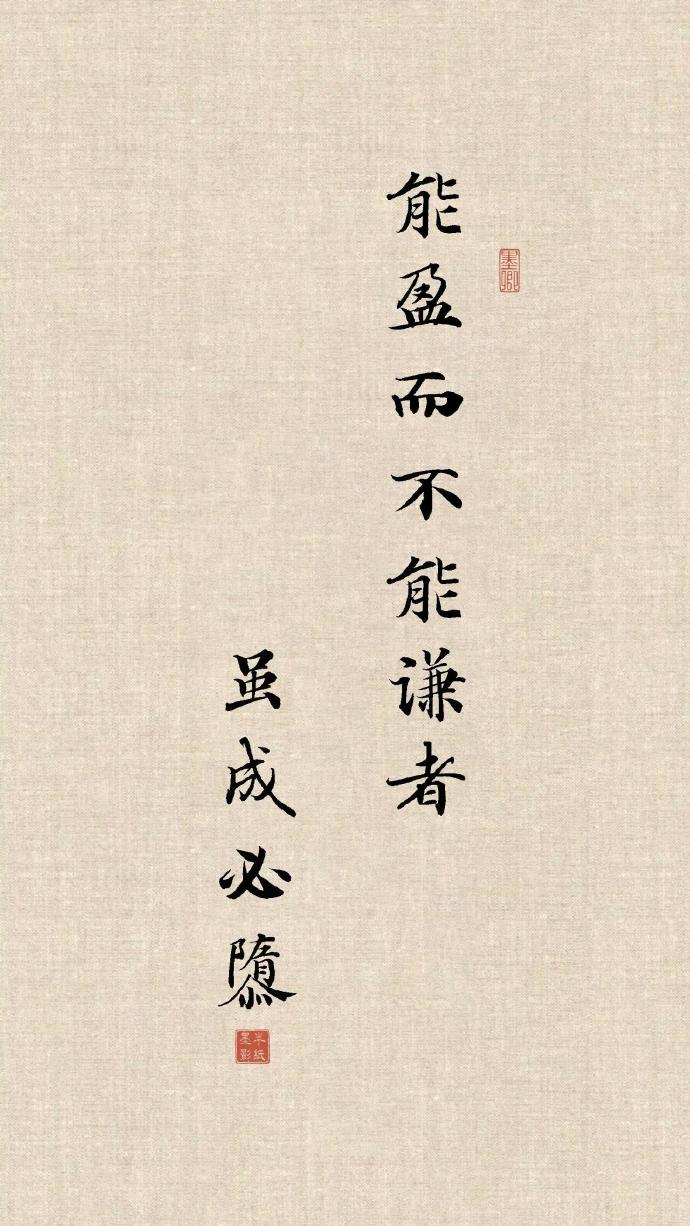 墨卿
能盈而不能谦者
虽成必隳
半纸
墨影